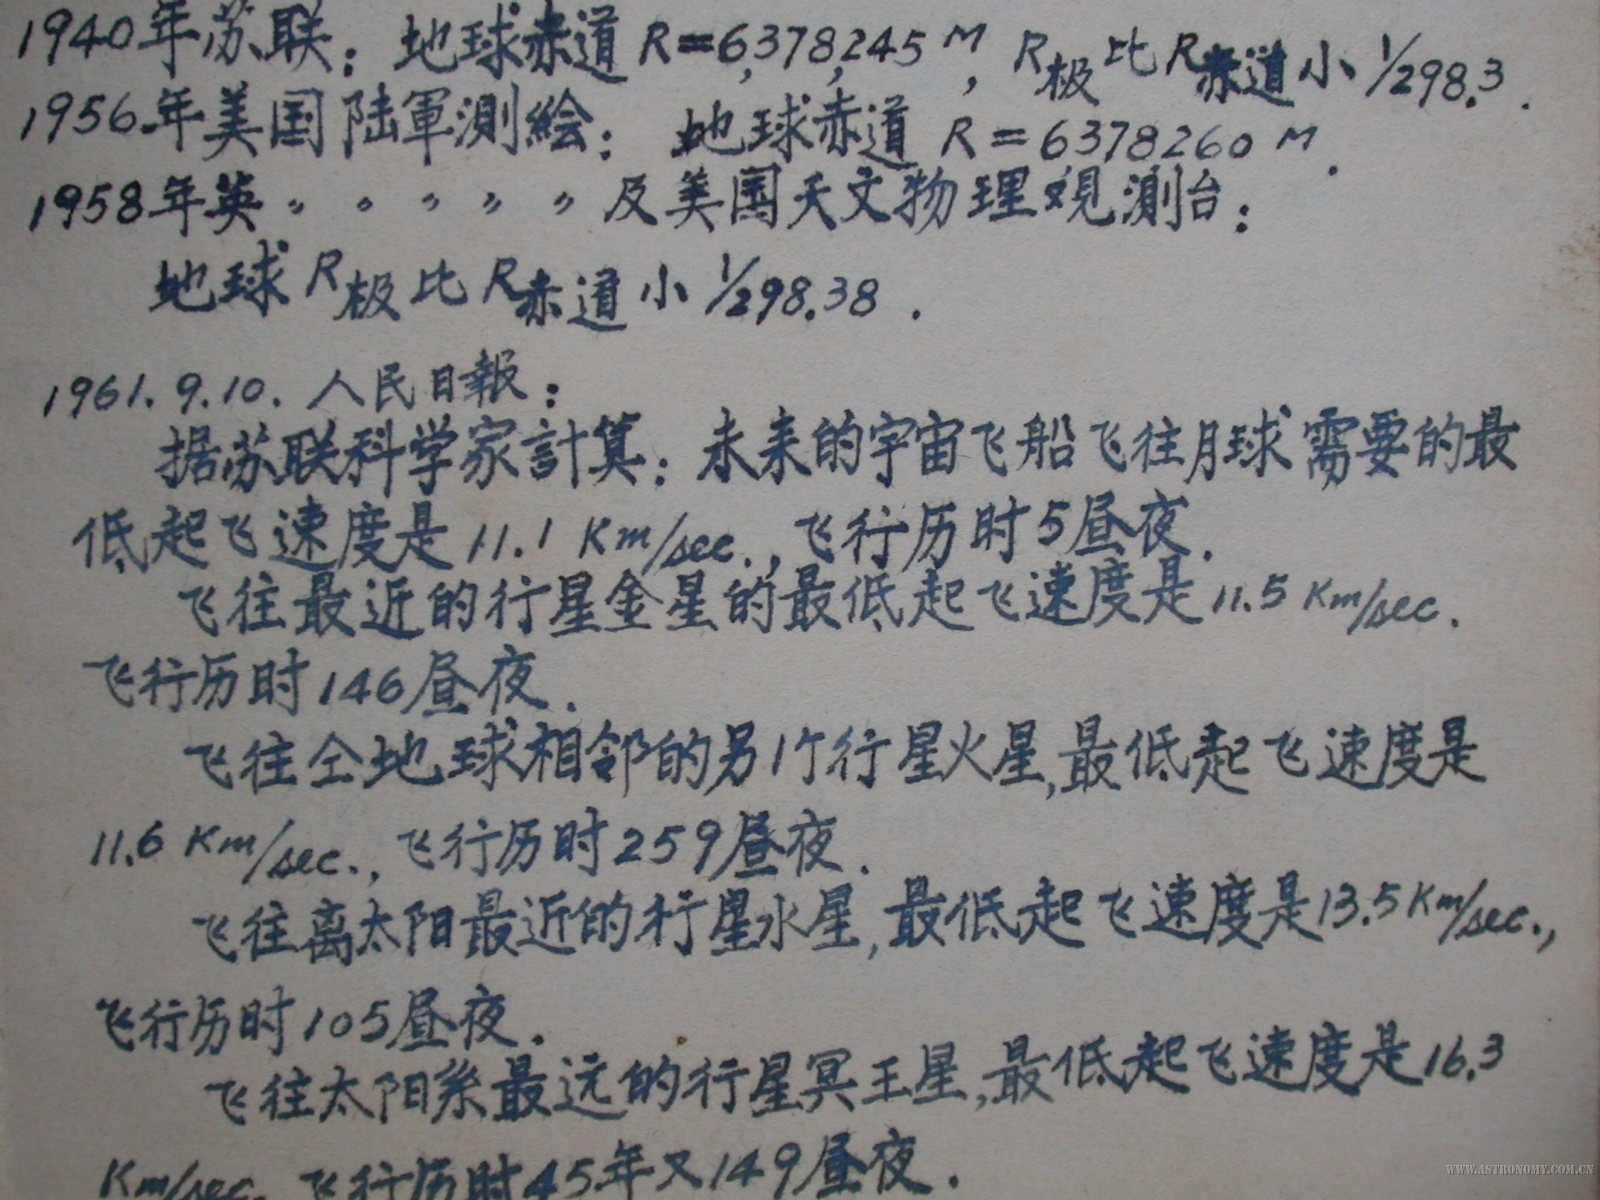 1940年苏联：地球赤道 R=6,378,245 M，R极比R赤道小 1/298.3.
1956.年美国陆軍測絵：地球赤道 R=6378260 M.
1958年英〃〃〃〃〃及美国天文物理观測台：
地球R极比R赤道小 1/298.38.
1961.9.10.人民日報：
据苏联科学家計算：未来的宇宙飞船飞往月球需要的最
低起飞速度是11.1 Km/sec.，飞行历时5昼夜.
飞往最近的行星金星的最低起飞速度是11.5 Km/sec.
飞行历时146昼夜.
飞往仝地球相邻的另1个行星火星,最低起飞速度是
11.6 Km/sec.，飞行历时259昼夜.
飞往离太阳最近的行星水星,最低起飞速度是13.5Km/sec.，
飞行历时105昼夜.
飞往太阳系最远的行星冥王星,最低起飞速度是16.3
Km/sec. 飞行历时45年又149昼夜.
WWW.ASTRONOMY.COM.CN